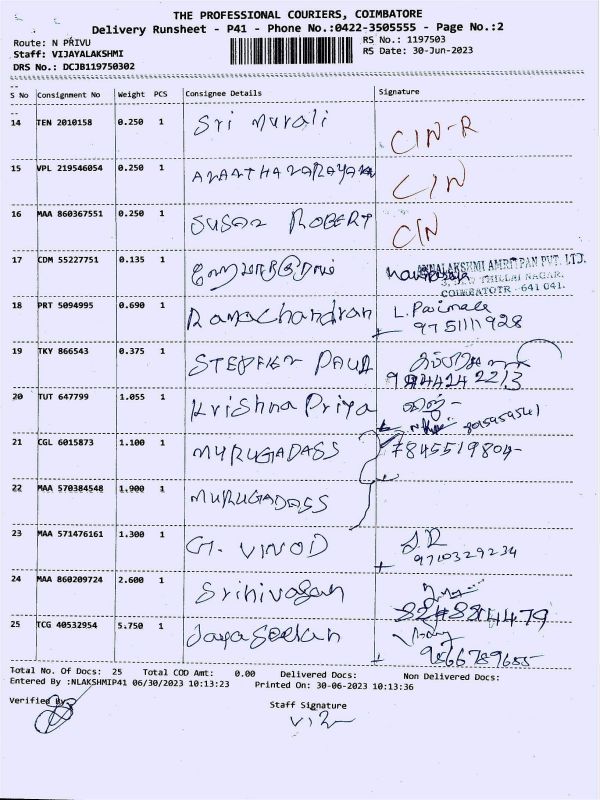 THE PROFESSIONAL COURIERS, COIMBATORE
Delivery Runsheet - P41 - Phone No.:0422-3505555 - Page No.:2
Route: N PRIVU
RS No.: 1197503
Staff: VIJAYALAKSHMI
RS Date: 30-Jun-2023
DRS No.: DCJB119750302
S No Consignment No Weight PCS Consignee Details Signature
14 TEN 2010158 0.250 1 Sri Murali CIN-R
15 VPL 219546054 0.250 1 ANANTHANARAYANAN CIN
16 MAA 860367551 0.250 1 SUSAN ROBERT CIN
17 CDM 55227751 0.135 1
ANNALAKSHMI AMRITPAN PVT. LTD.
3, NEW THILLAI NAGAR,
COIMBATOTR - 641 041.
18 PRT 5094995 0.690 1 Ramachandran L. Parimala
9751111928
19 TKY 866543 0.375 1 STEPHEN PAUL
20 TUT 647799 1.055 1 Krishna Priya
8015959541
21 CGL 6015873 1.100 1 MURUGADASS 7845519804
22 MAA 570384548 1.900 1 MURUGADASS
23 MAA 571476161 1.300 1 G. VINOD
9710329234
24 MAA 860209724 2.600 1 Srinivasan
25 TCG 40532954 5.750 1 Jayaseelan
9566789655
Total No. Of Docs: 25 Total COD Amt: 0.00 Delivered Docs: Non Delivered Docs:
Entered By :NLAKSHMIP41 06/30/2023 10:13:23 Printed On: 30-06-2023 10:13:36
Verified By:
Staff Signature